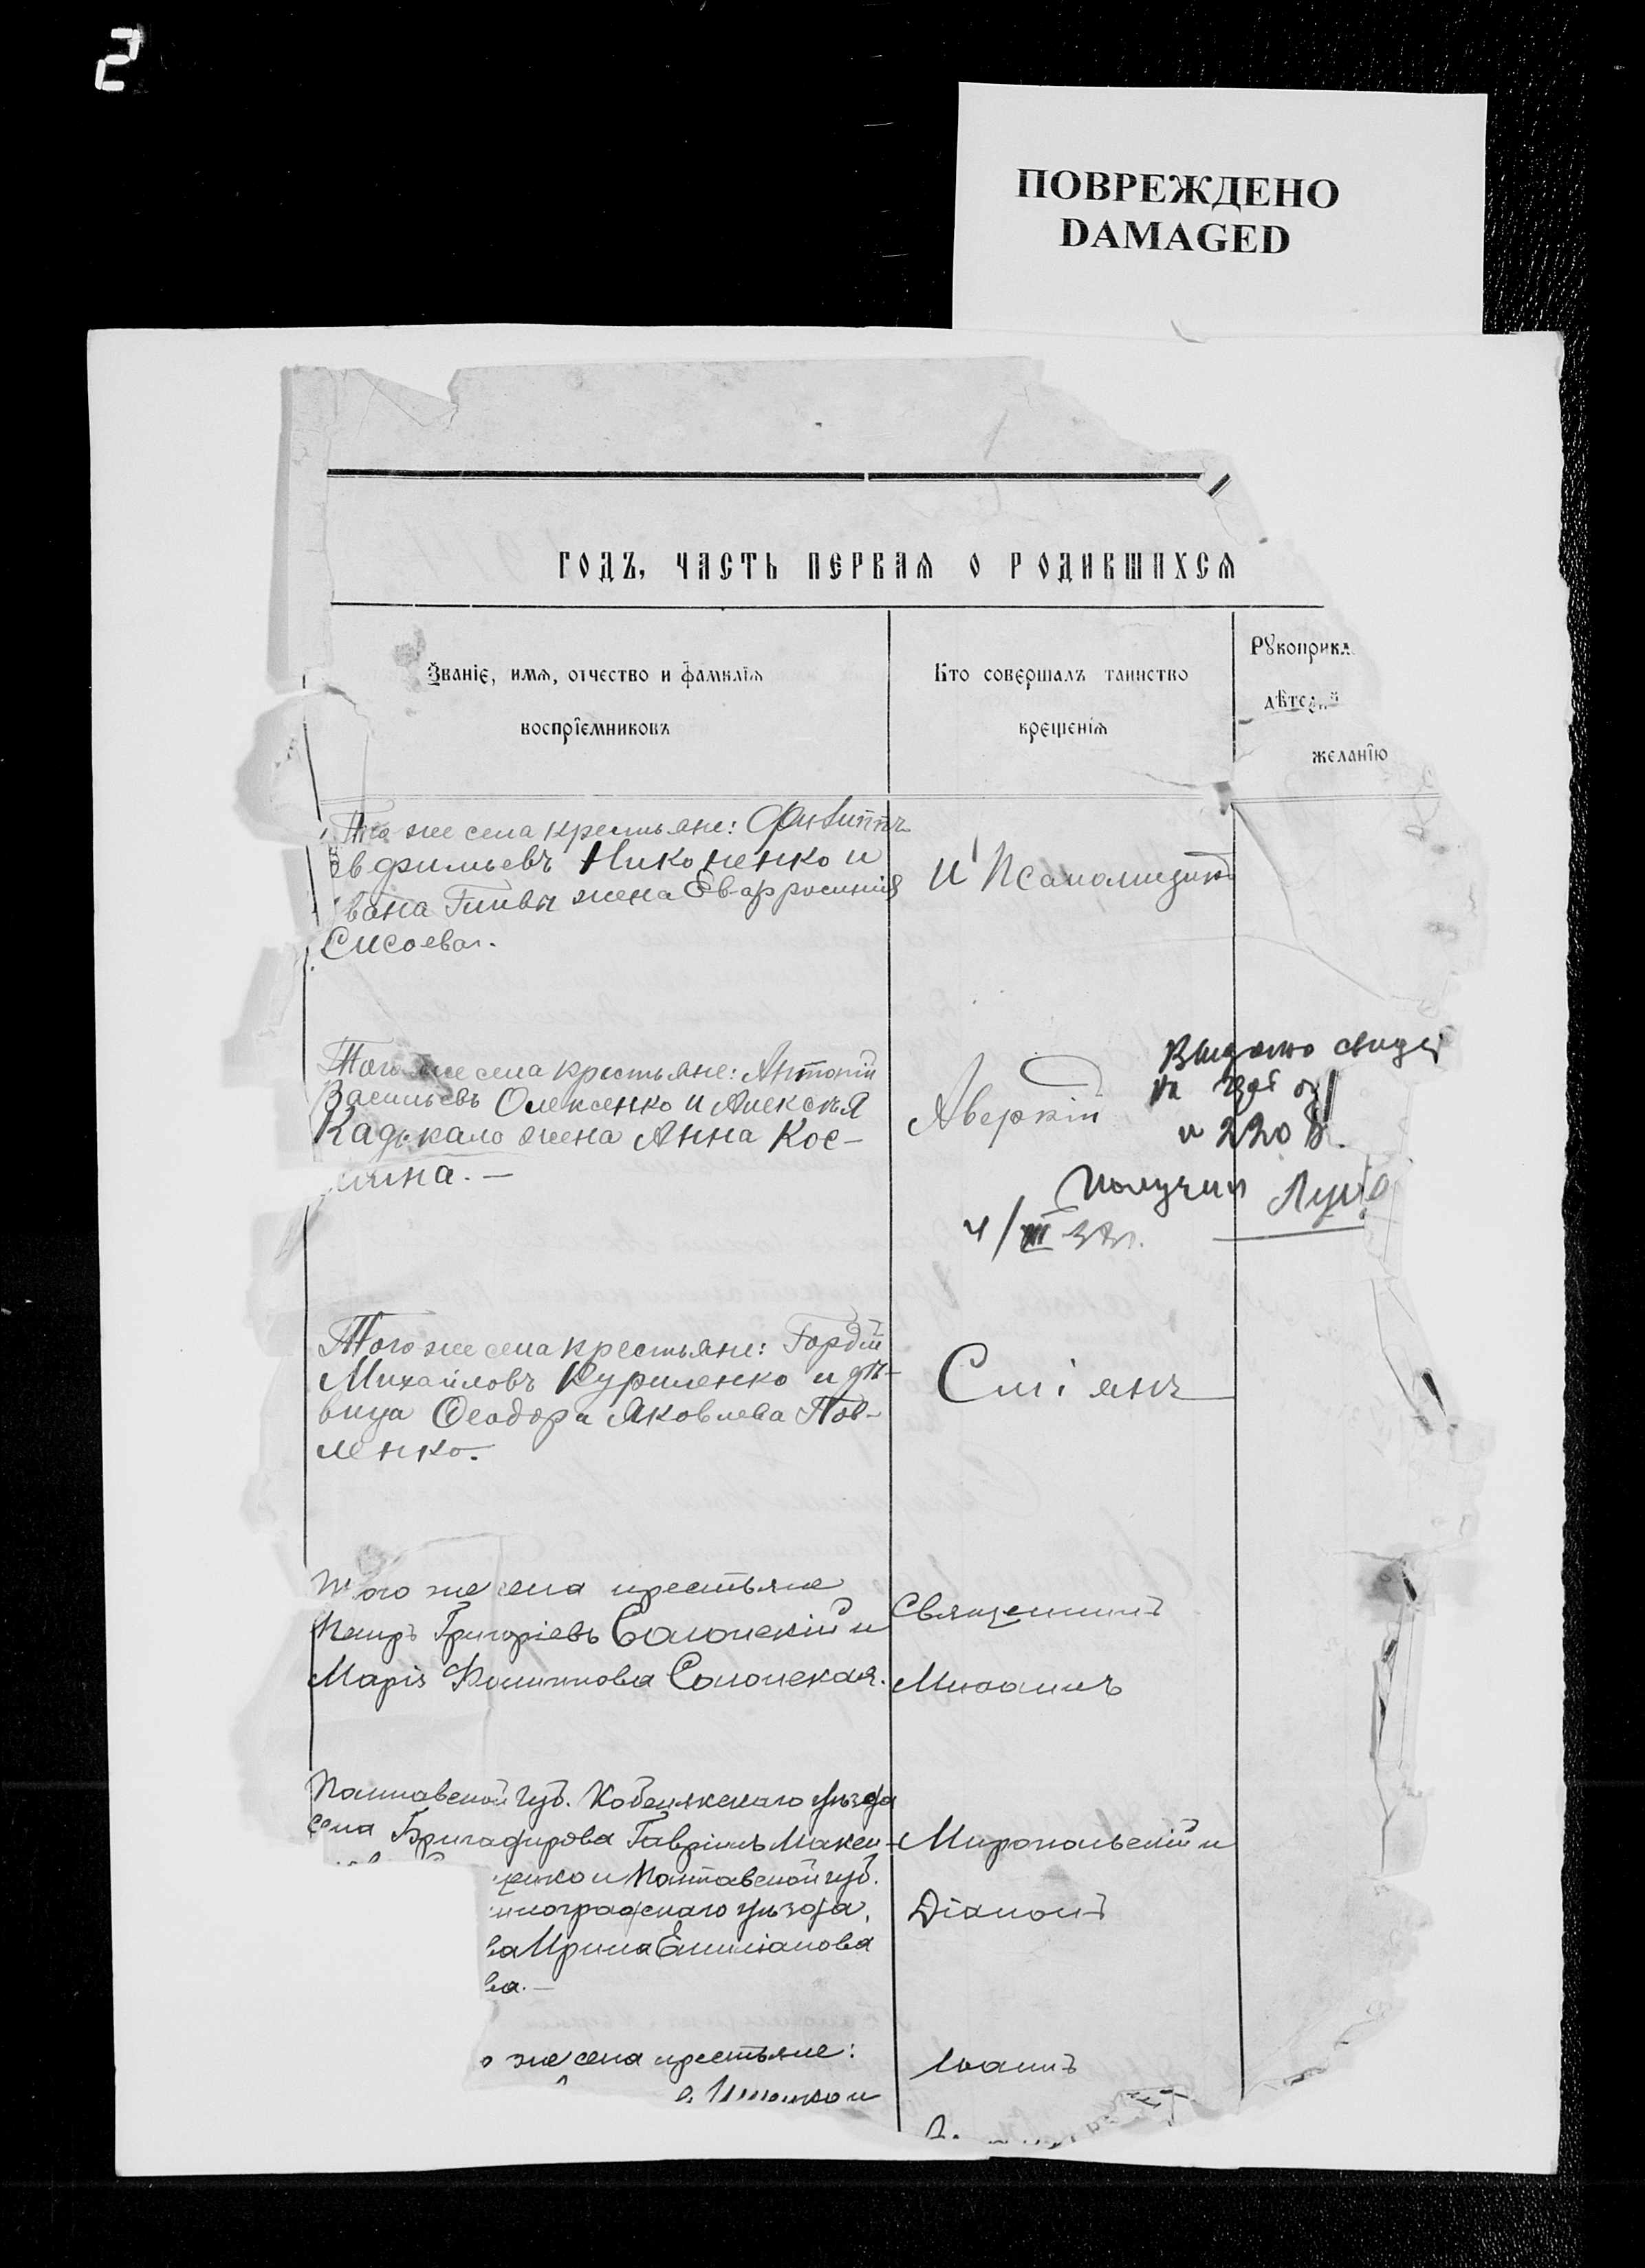 2
ПОВРЕЖДЕНО
DAMAGED
ГОДЪ, ЧАСТЬ ПЕРВАѦ О РОДИВШИХСѦ
Званіе, имѧ, отчество и фамиліѧ
воспріемниковъ
Кто совершалъ таинство
крещеніѧ
Рꙋкоприкл
дѣтел
желанію
же села крестьяне: Филиппъ
Никоненко и
жена Евфросинія
Сисоева.
И Псаломщикъ
Того же села крестьяне: Антоній
Васильевъ Олексенко и Алексѣя
Кадькало жена Анна Кос-
мина. —
Аверкій
Выдано свидѣ
и 220 В.
получил
4/III
Того же села крестьяне: Гордій
Михайловъ Куриленко и дѣ-
вица Ѳеодора Яковлева Пав-
ленко.
Того же села крестьяне
Петръ Григоріевъ Солонскій и
Марія Филиппова Солонская.
Священникъ
Михаилъ
Полтавской губ. Кобелякскаго уѣзда
села Бригадирова Гавріилъ Макси-
енко и Полтавской губ.
иноградскаго уѣзда,
ва Ирина Емиліанова
ва. —
Миропольскій и
Діаконъ
о же села крестьяне:
Іоаннъ